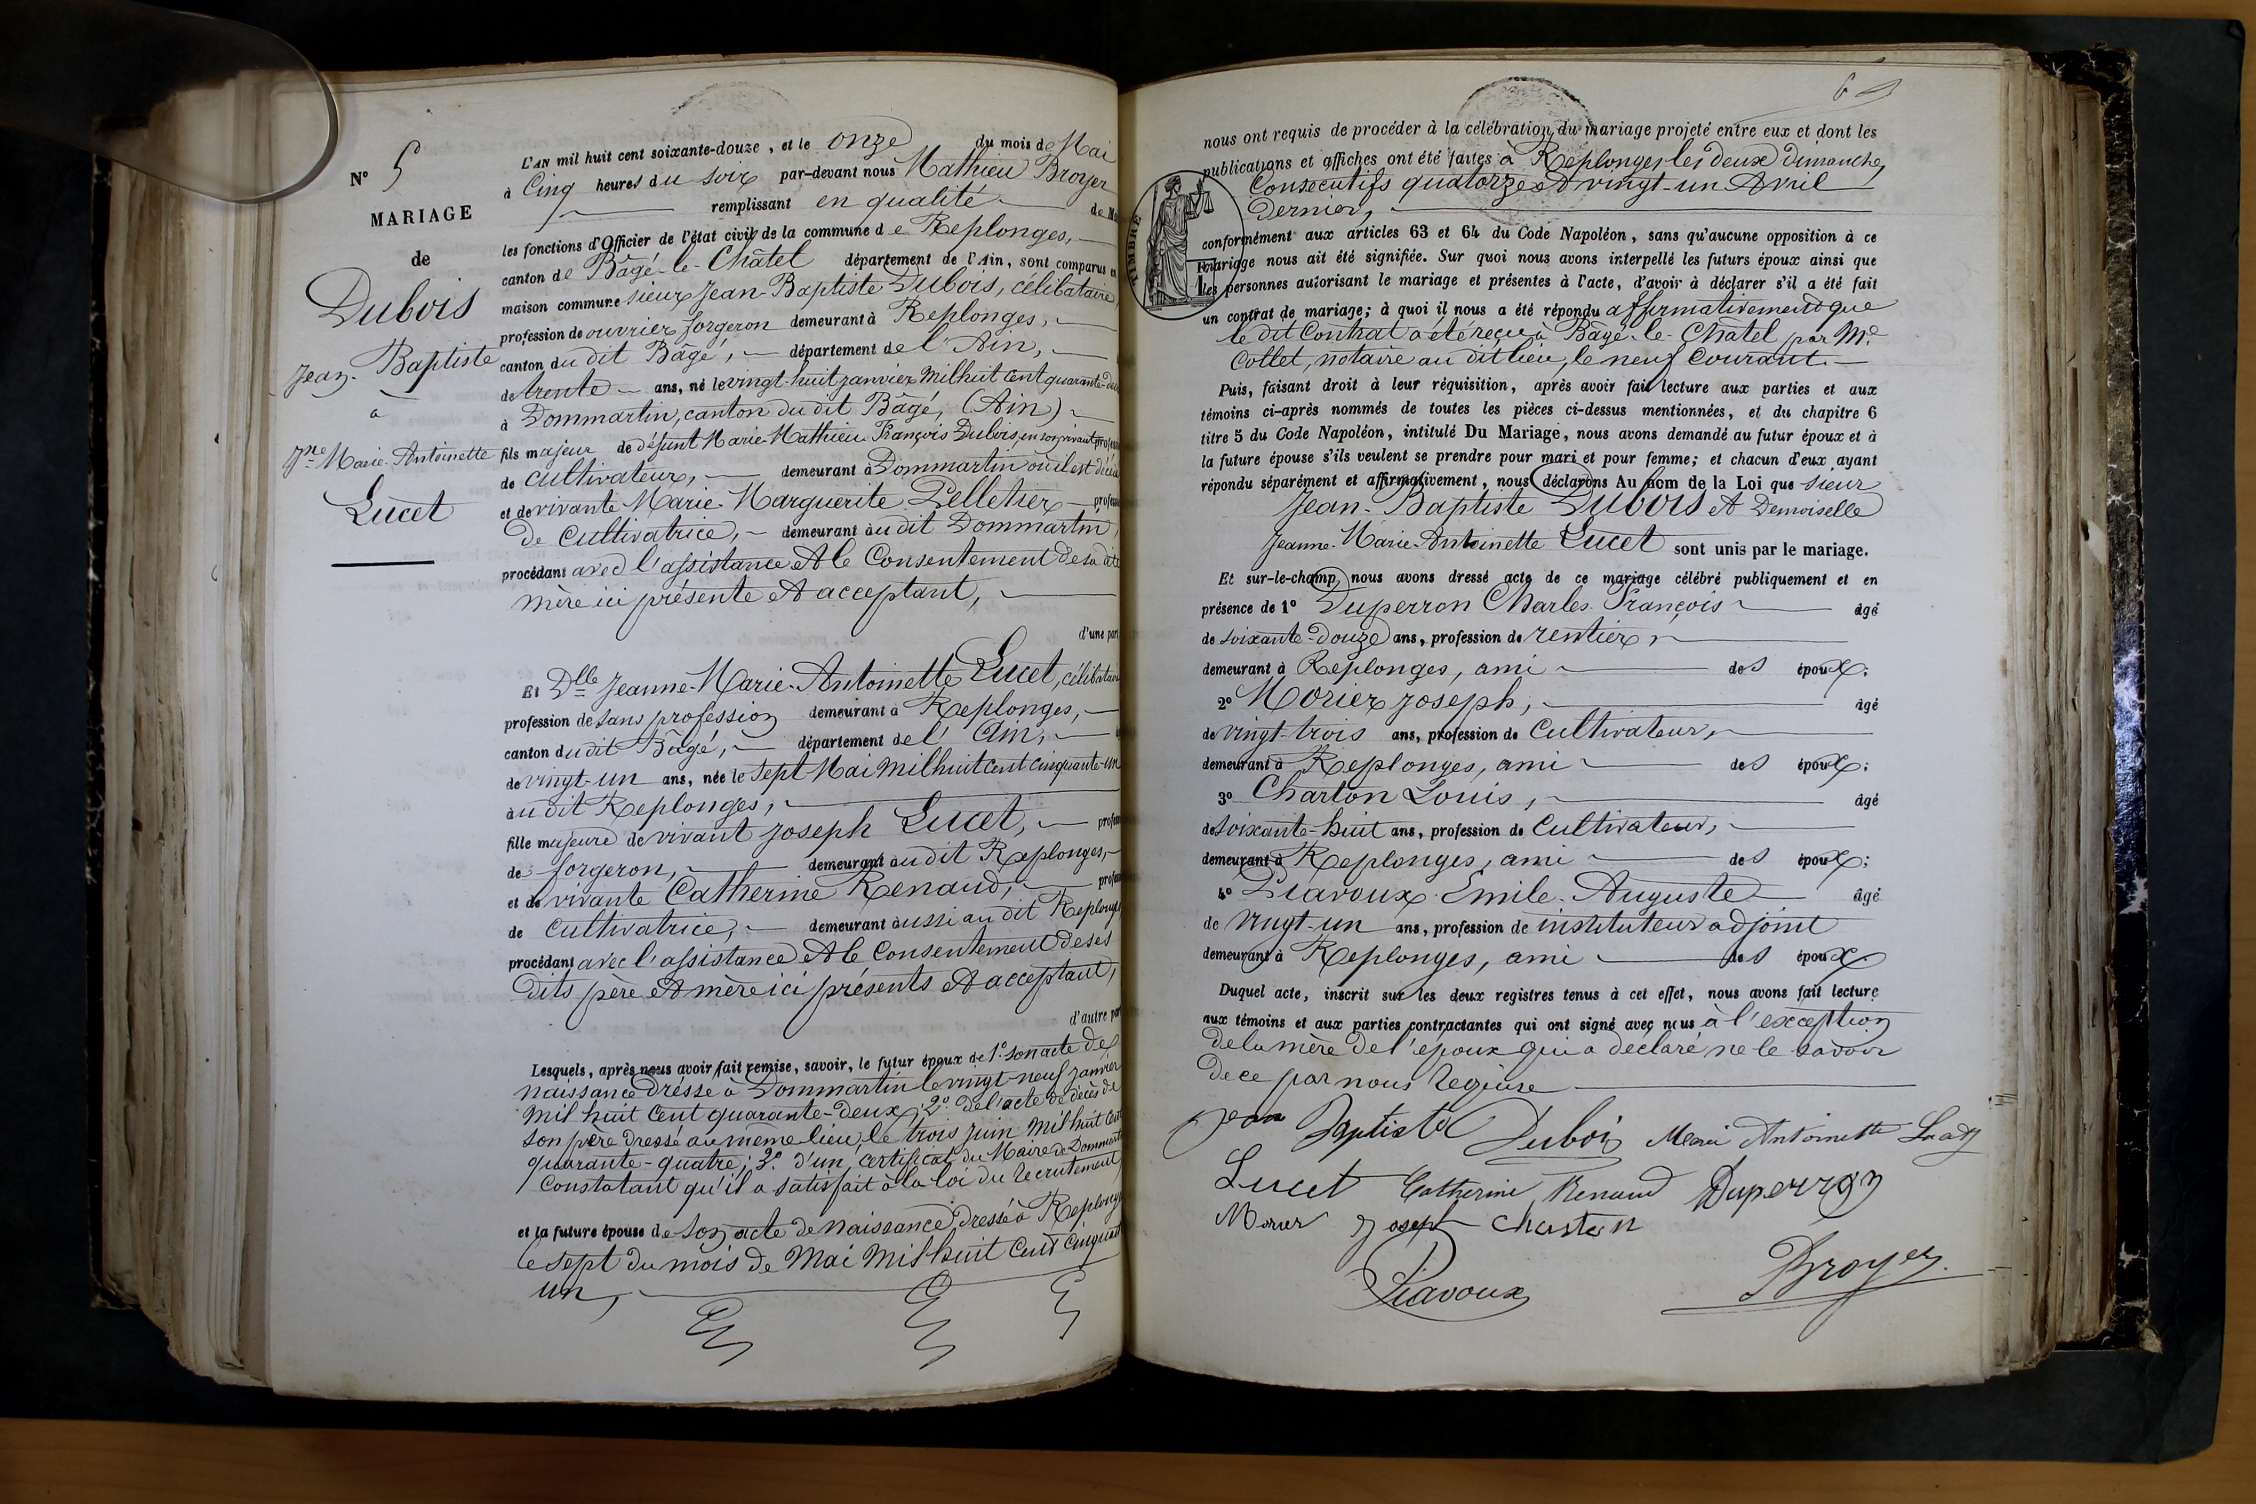 N° 5
MARIAGE
de
Dubois
Jean-Baptiste
à
Jne Marie-Antoinette
Lucet
L'AN mil huit cent soixante-douze, et le onze du mois de Mai
à Cinq heures du soir par-devant nous Mathieu Broyer
remplissant en qualité de
les fonctions d'Officier de l'état civil de la commune de Replonges,
canton de Bâgé-le-Châtel département de l'Ain, sont comparus en
maison commune sieur Jean-Baptiste Dubois, célibataire,
profession de ouvrier forgeron demeurant à Replonges,
canton du dit Bâgé, département de l'Ain,
de trente ans, né le vingt-huit janvier mil huit cent quarante-deux
à Dommartin, canton du dit Bâgé, (Ain)
fils majeur de défunt Marie-Mathieu-François Dubois, en son vivant profession
de cultivateur, demeurant à Dommartin où il est décédé
et de vivante Marie-Marguerite Pelletier profession
de cultivatrice, demeurant au dit Dommartin,
procédant avec l'assistance et le Consentement de sa dite
mère ici présente et acceptant,
d'une part
Et Dlle Jeanne-Marie-Antoinette Lucet, célibataire
profession de sans profession demeurant à Replonges,
canton du dit Bâgé, département de l'Ain,
de vingt-un ans, née le sept Mai mil huit cent cinquante-un
au dit Replonges,
fille majeure de vivant Joseph Lucet, profession
de forgeron, demeurant au dit Replonges,
et de vivante Catherine Renaud, profession
de cultivatrice, demeurant aussi au dit Replonges
procédant avec l'assistance et le Consentement de ses
dits père et mère ici présents et acceptant,
d'autre part
Lesquels, après nous avoir fait remise, savoir, le futur époux de 1° son acte de
naissance dressé à Dommartin le vingt-neuf janvier
mil huit cent quarante-deux; 2° de l'acte de décès de
son père dressé au même lieu, le trois juin mil huit cent
quarante-quatre; 3° d'un certificat du Maire de Dommartin
constatant qu'il a satisfait à la loi du recrutement
et la future épouse de son acte de naissance dressé à Replonges
le sept du mois de Mai mil huit cent cinquante
un,
nous ont requis de procéder à la célébration du mariage projeté entre eux et dont les
publications et affiches ont été faites à Replonges les deux dimanches
Consécutifs quatorze et vingt-un Avril
dernier,
TIMBRE
conformément aux articles 63 et 64 du Code Napoléon, sans qu'aucune opposition à ce
mariage nous ait été signifiée. Sur quoi nous avons interpellé les futurs époux ainsi que
les personnes autorisant le mariage et présentes à l'acte, d'avoir à déclarer s'il a été fait
un contrat de mariage; à quoi il nous a été répondu affirmativement que
le dit Contrat a été reçu à Bâgé-le-Châtel par Me
Collet, notaire au dit lieu, le neuf courant.
Puis, faisant droit à leur réquisition, après avoir fait lecture aux parties et aux
témoins ci-après nommés de toutes les pièces ci-dessus mentionnées, et du chapitre 6
titre 5 du Code Napoléon, intitulé Du Mariage, nous avons demandé au futur époux et à
la future épouse s'ils veulent se prendre pour mari et pour femme; et chacun d'eux ayant
répondu séparément et affirmativement, nous déclarons Au nom de la Loi que sieur
Jean-Baptiste Dubois et Demoiselle
Jeanne-Marie-Antoinette Lucet sont unis par le mariage.
Et sur-le-champ nous avons dressé acte de ce mariage célébré publiquement et en
présence de 1° Duperron Charles-François âgé
de soixante-douze ans, profession de rentier,
demeurant à Replonges, ami des époux;
2° Morier Joseph, âgé
de vingt-trois ans, profession de cultivateur,
demeurant à Replonges, ami des époux;
3° Charton Louis, âgé
de soixante-huit ans, profession de Cultivateur,
demeurant à Replonges, ami des époux;
4° Piavoux Emile-Auguste âgé
de vingt-un ans, profession de instituteur adjoint
demeurant à Replonges, ami des époux
Duquel acte, inscrit sur les deux registres tenus à cet effet, nous avons fait lecture
aux témoins et aux parties contractantes qui ont signé avec nous à l'exception
de la mère de l'époux qui a déclaré ne le savoir
de ce par nous requise
Jean Baptiste Dubois Marie Antoinette Lucet
Lucet Catherine Renaud Duperron
Morier Joseph Charton
Piavoux Broyer